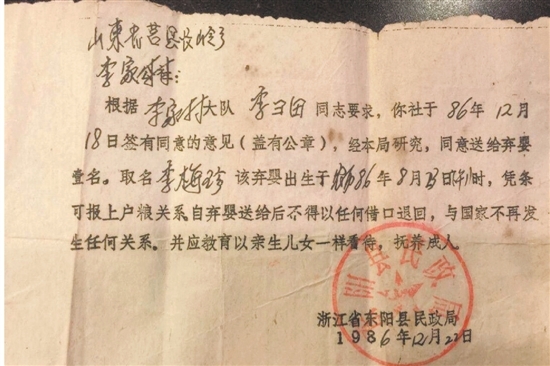 山东省莒县长岭乡
李家村:
根据李家村大队 李曰田 同志要求,你社于86年12月
18日签有同意的意见(盖有公章),经本局研究,同意送给弃婴
壹名。取名李梅玲 该弃婴出生于86年8月 时,凭条
可报上户粮关系。自弃婴送给后不得以任何借口退回,与国家不再发
生任何关系。并应教育以亲生儿女一样看待,抚养成人。
浙江省东阳县民政局
1986年12月22日